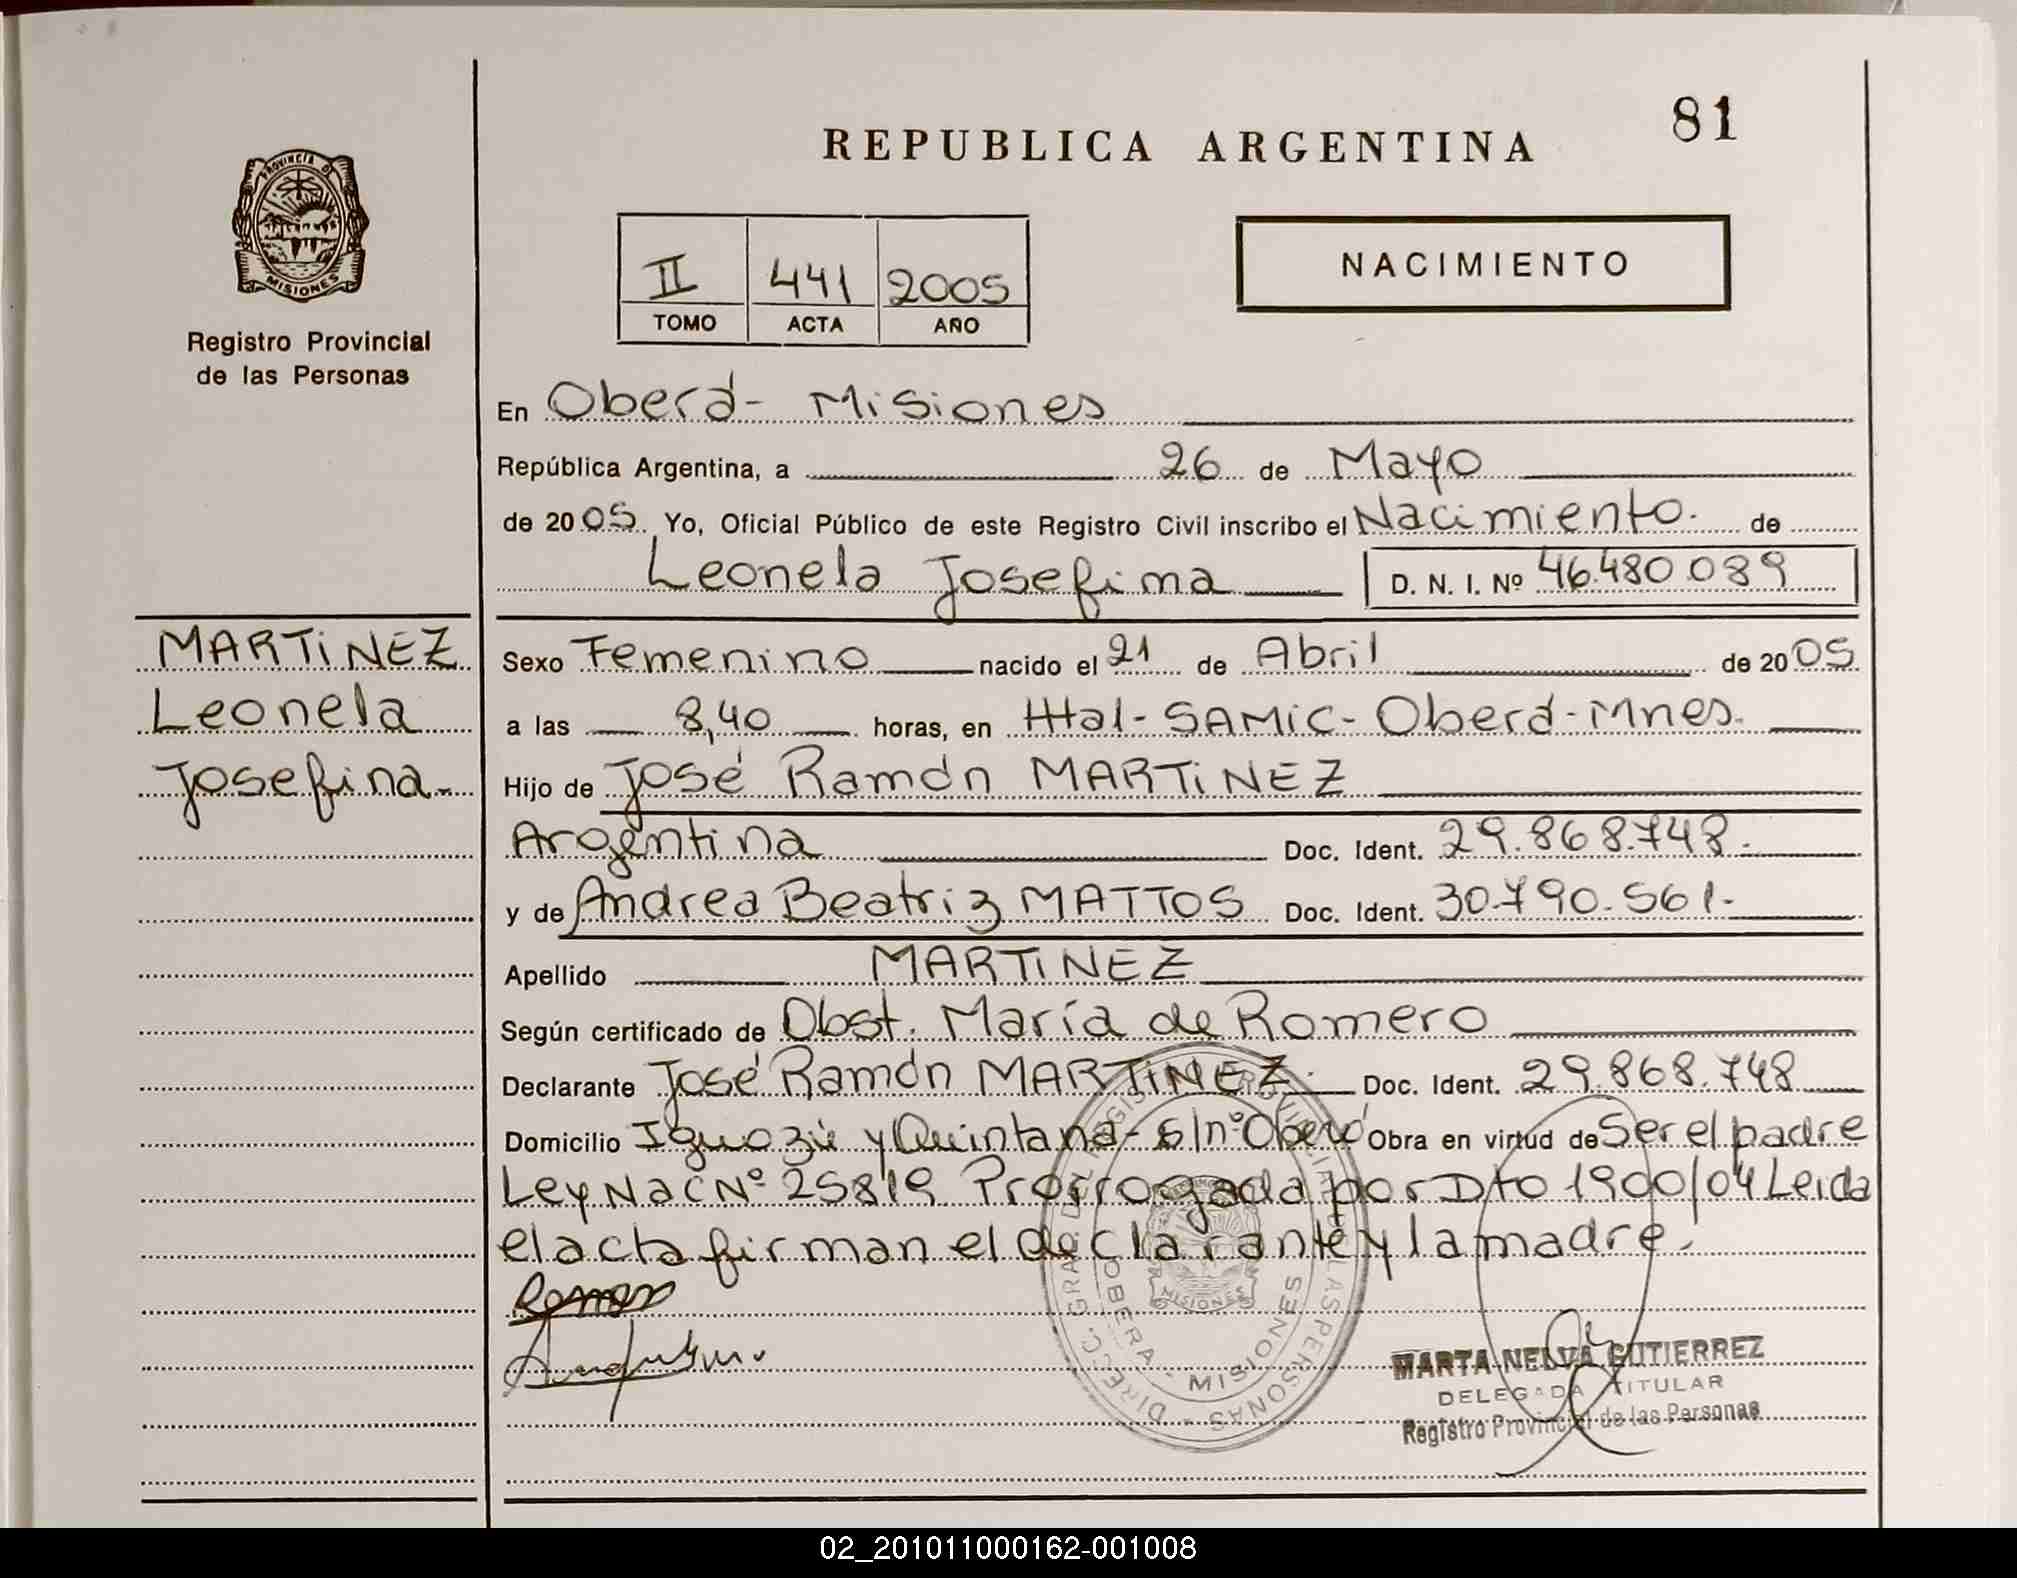 81
REPUBLICA ARGENTINA
PROVINCIA DE
MISIONES
Registro Provincial
de las Personas
II 441 2005
TOMO ACTA AÑO
NACIMIENTO
En Oberá - Misiones
República Argentina, a 26 de Mayo
de 2005. Yo, Oficial Público de este Registro Civil inscribo el Nacimiento. de
Leonela Josefina D. N. I. Nº 46.480.089
MARTINEZ
Leonela
Josefina.-
Sexo Femenino nacido el 21 de Abril de 2005
a las 8,40 horas, en Htal - SAMIC - Oberá - Mnes.
Hijo de José Ramón MARTINEZ
Argentina Doc. Ident. 29.868.748.
y de Andrea Beatriz MATTOS Doc. Ident. 30.790.561.-
Apellido MARTINEZ
Según certificado de Obst. María de Romero
Declarante José Ramón MARTINEZ.- Doc. Ident. 29.868.748
Domicilio Iguazú y Quintana - s/nº Oberá Obra en virtud de Ser el padre
Ley Nac Nº 25819 Prorrogada por Dto 1900/04 Leida
el acta firman el declarante y la madre.
DIRECC. GRAL DEL REGISTRO PROVINCIAL DE LAS PERSONAS
OBERA - MISIONES
MISIONES
MARTA NELVA GUTIERREZ
DELEGADA TITULAR
Registro Provincial de las Personas
02_201011000162-001008